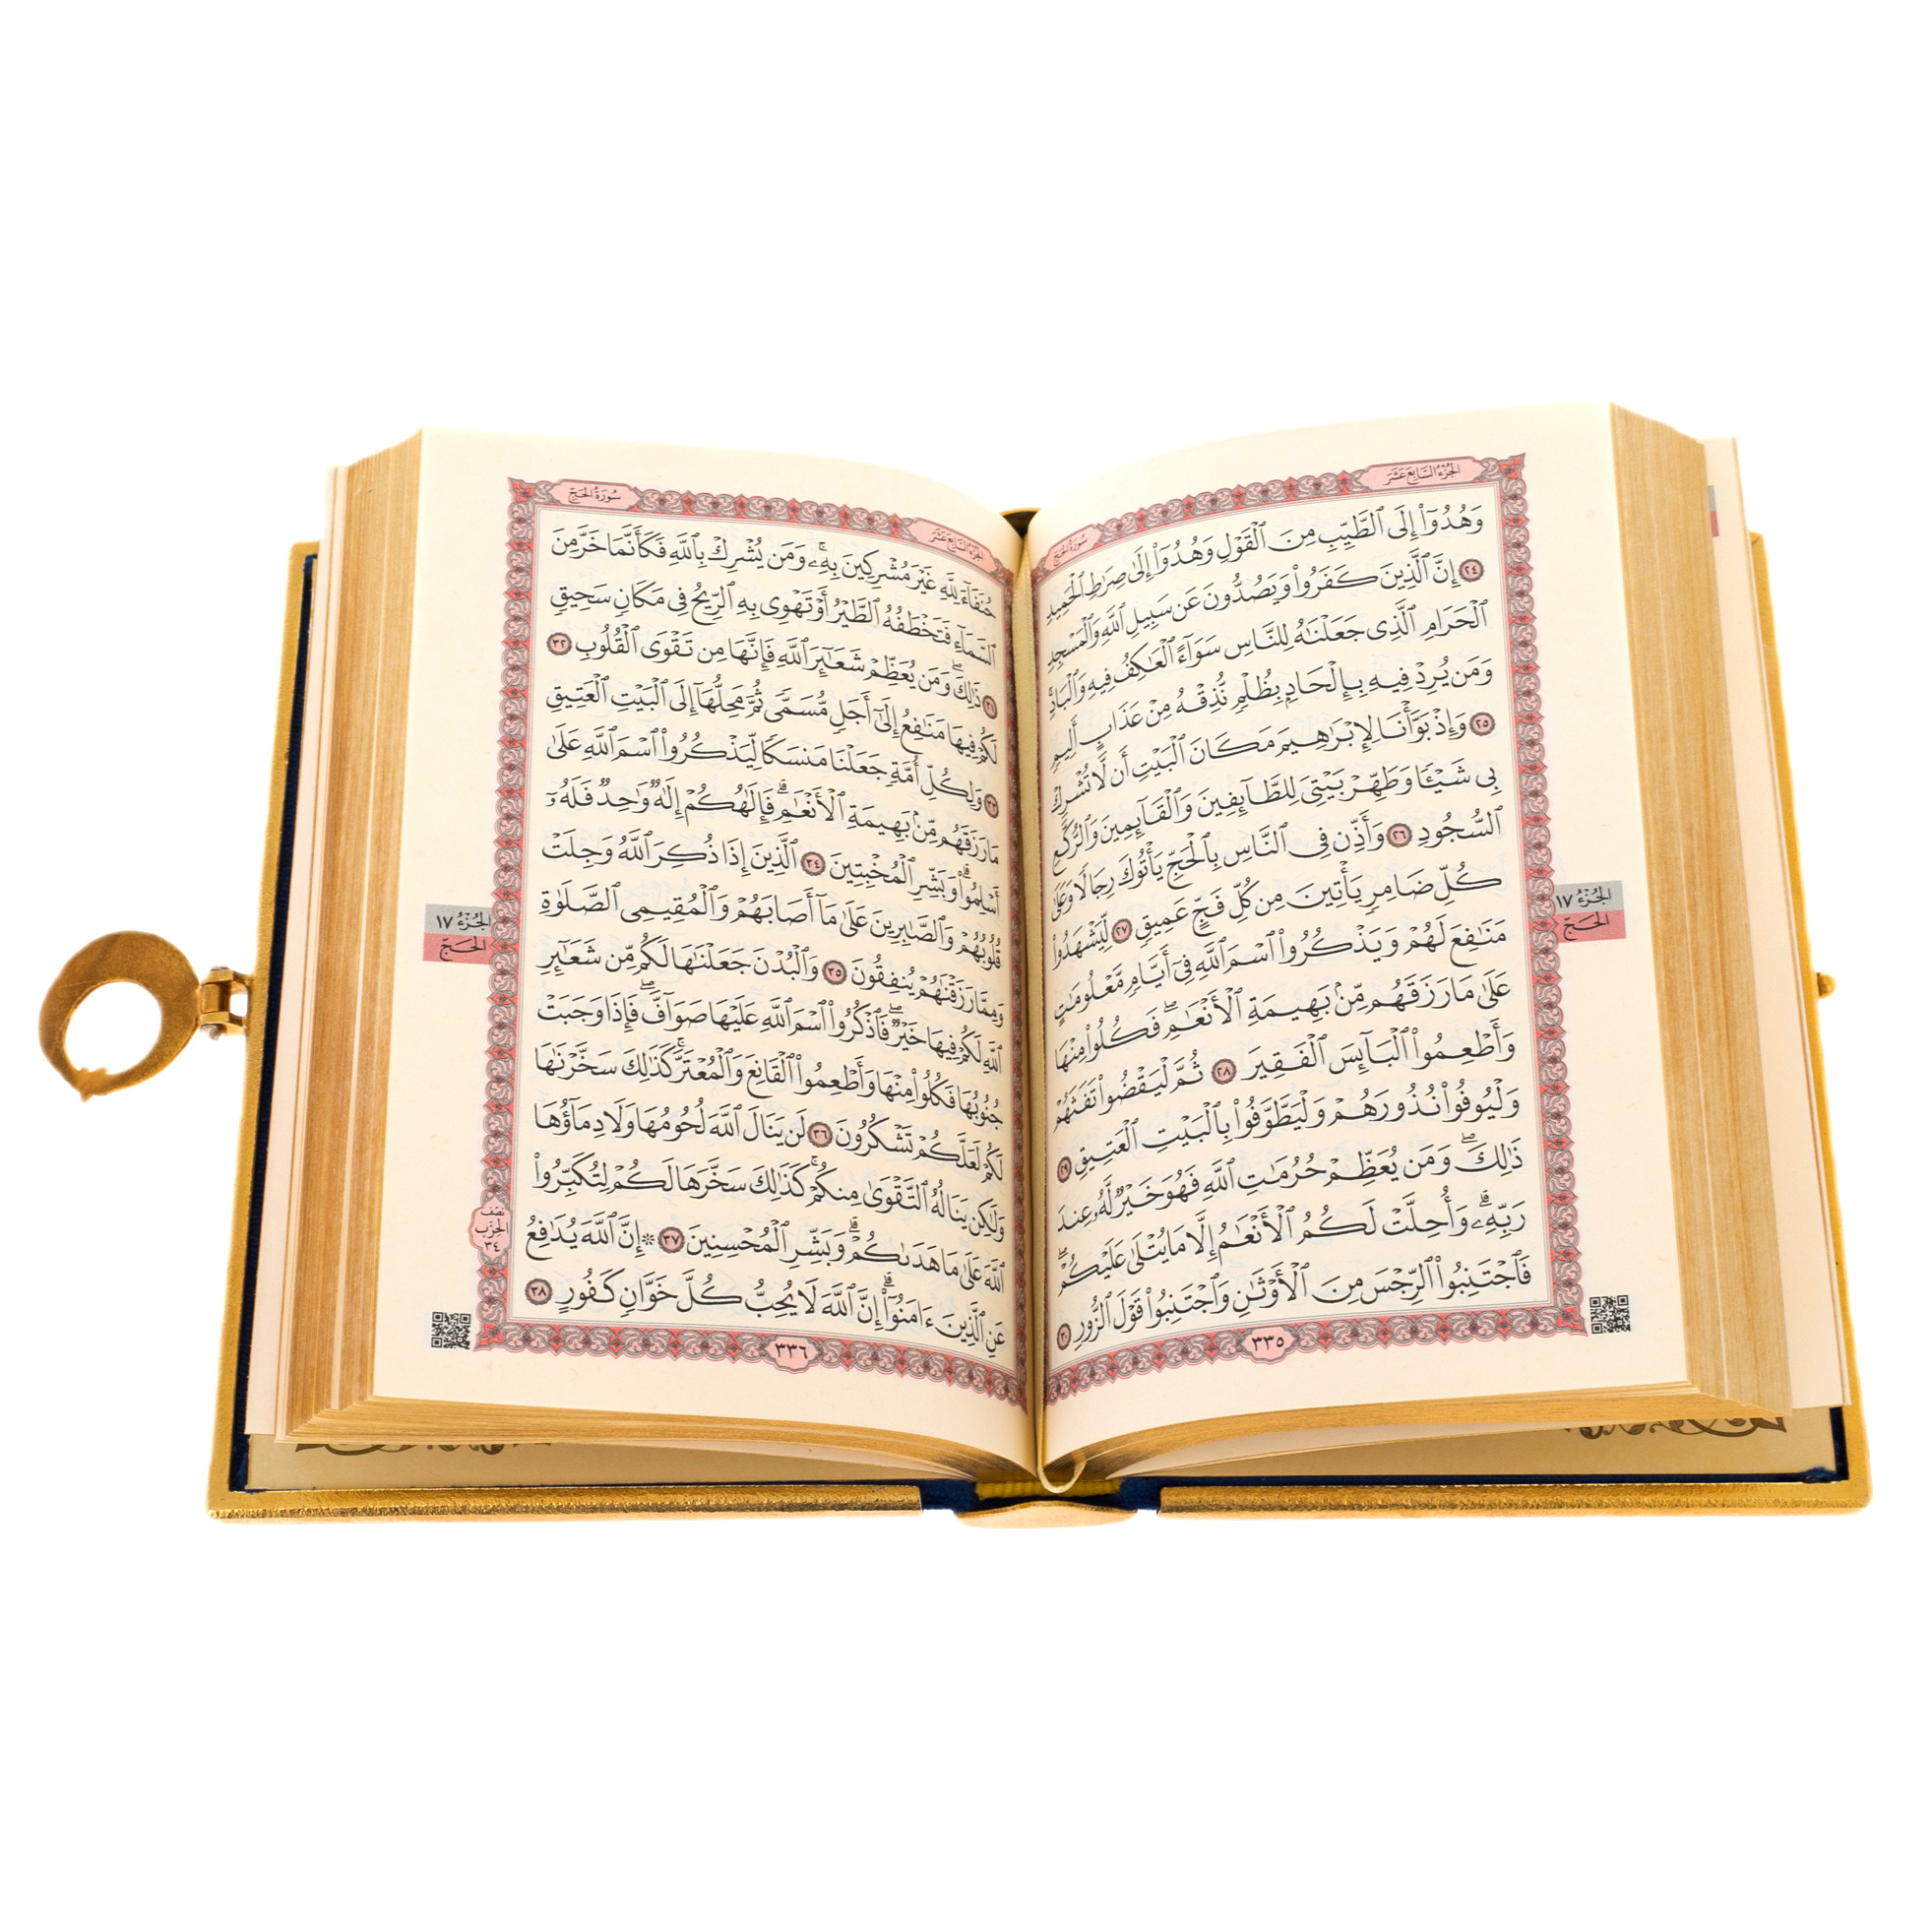 الجُزْءُ السَّابِعَ عَشَرَ
سُورَةُ الحَجِّ
وَهُدُوٓا۟ إِلَى ٱلطَّيِّبِ مِنَ ٱلْقَوْلِ وَهُدُوٓا۟ إِلَىٰ صِرَٰطِ ٱلْحَمِيدِ
٢٤ إِنَّ ٱلَّذِينَ كَفَرُوا۟ وَيَصُدُّونَ عَن سَبِيلِ ٱللَّهِ وَٱلْمَسْجِدِ
ٱلْحَرَامِ ٱلَّذِى جَعَلْنَٰهُ لِلنَّاسِ سَوَآءً ٱلْعَٰكِفُ فِيهِ وَٱلْبَادِ ۚ
وَمَن يُرِدْ فِيهِ بِإِلْحَادٍۭ بِظُلْمٍ نُّذِقْهُ مِنْ عَذَابٍ أَلِيمٍ
٢٥ وَإِذْ بَوَّأْنَا لِإِبْرَٰهِيمَ مَكَانَ ٱلْبَيْتِ أَن لَّا تُشْرِكْ
بِى شَيْـًٔا وَطَهِّرْ بَيْتِىَ لِلطَّآئِفِينَ وَٱلْقَآئِمِينَ وَٱلرُّكَّعِ
ٱلسُّجُودِ ٢٦ وَأَذِّن فِى ٱلنَّاسِ بِٱلْحَجِّ يَأْتُوكَ رِجَالًا وَعَلَىٰ
كُلِّ ضَامِرٍ يَأْتِينَ مِن كُلِّ فَجٍّ عَمِيقٍ ٢٧ لِّيَشْهَدُوا۟
مَنَٰفِعَ لَهُمْ وَيَذْكُرُوا۟ ٱسْمَ ٱللَّهِ فِىٓ أَيَّامٍ مَّعْلُومَٰتٍ
عَلَىٰ مَا رَزَقَهُم مِّنۢ بَهِيمَةِ ٱلْأَنْعَٰمِ ۖ فَكُلُوا۟ مِنْهَا
وَأَطْعِمُوا۟ ٱلْبَآئِسَ ٱلْفَقِيرَ ٢٨ ثُمَّ لْيَقْضُوا۟ تَفَثَهُمْ
وَلْيُوفُوا۟ نُذُورَهُمْ وَلْيَطَّوَّفُوا۟ بِٱلْبَيْتِ ٱلْعَتِيقِ ٢٩
ذَٰلِكَ ۖ وَمَن يُعَظِّمْ حُرُمَٰتِ ٱللَّهِ فَهُوَ خَيْرٌ لَّهُۥ عِندَ
رَبِّهِۦ ۗ وَأُحِلَّتْ لَكُمُ ٱلْأَنْعَٰمُ إِلَّا مَا يُتْلَىٰ عَلَيْكُمْ ۖ
فَٱجْتَنِبُوا۟ ٱلرِّجْسَ مِنَ ٱلْأَوْثَٰنِ وَٱجْتَنِبُوا۟ قَوْلَ ٱلزُّورِ ٣٠
٣٣٥
الجُزْءُ ١٧
الحَجّ
الجُزْءُ السَّابِعَ عَشَرَ
سُورَةُ الحَجِّ
حُنَفَآءَ لِلَّهِ غَيْرَ مُشْرِكِينَ بِهِۦ ۚ وَمَن يُشْرِكْ بِٱللَّهِ فَكَأَنَّمَا خَرَّ مِنَ
ٱلسَّمَآءِ فَتَخْطَفُهُ ٱلطَّيْرُ أَوْ تَهْوِى بِهِ ٱلرِّيحُ فِى مَكَانٍ سَحِيقٍ
٣١ ذَٰلِكَ ۖ وَمَن يُعَظِّمْ شَعَٰٓئِرَ ٱللَّهِ فَإِنَّهَا مِن تَقْوَى ٱلْقُلُوبِ ٣٢
لَكُمْ فِيهَا مَنَٰفِعُ إِلَىٰٓ أَجَلٍ مُّسَمًّى ثُمَّ مَحِلُّهَآ إِلَى ٱلْبَيْتِ ٱلْعَتِيقِ
٣٣ وَلِكُلِّ أُمَّةٍ جَعَلْنَا مَنسَكًا لِّيَذْكُرُوا۟ ٱسْمَ ٱللَّهِ عَلَىٰ
مَا رَزَقَهُم مِّنۢ بَهِيمَةِ ٱلْأَنْعَٰمِ ۗ فَإِلَٰهُكُمْ إِلَٰهٌ وَٰحِدٌ فَلَهُۥٓ
أَسْلِمُوا۟ ۗ وَبَشِّرِ ٱلْمُخْبِتِينَ ٣٤ ٱلَّذِينَ إِذَا ذُكِرَ ٱللَّهُ وَجِلَتْ
قُلُوبُهُمْ وَٱلصَّٰبِرِينَ عَلَىٰ مَآ أَصَابَهُمْ وَٱلْمُقِيمِى ٱلصَّلَوٰةِ
وَمِمَّا رَزَقْنَٰهُمْ يُنفِقُونَ ٣٥ وَٱلْبُدْنَ جَعَلْنَٰهَا لَكُم مِّن شَعَٰٓئِرِ
ٱللَّهِ لَكُمْ فِيهَا خَيْرٌ ۖ فَٱذْكُرُوا۟ ٱسْمَ ٱللَّهِ عَلَيْهَا صَوَآفَّ ۖ فَإِذَا وَجَبَتْ
جُنُوبُهَا فَكُلُوا۟ مِنْهَا وَأَطْعِمُوا۟ ٱلْقَانِعَ وَٱلْمُعْتَرَّ ۚ كَذَٰلِكَ سَخَّرْنَٰهَا
لَكُمْ لَعَلَّكُمْ تَشْكُرُونَ ٣٦ لَن يَنَالَ ٱللَّهَ لُحُومُهَا وَلَا دِمَآؤُهَا
وَلَٰكِن يَنَالُهُ ٱلتَّقْوَىٰ مِنكُمْ ۚ كَذَٰلِكَ سَخَّرَهَا لَكُمْ لِتُكَبِّرُوا۟
ٱللَّهَ عَلَىٰ مَا هَدَىٰكُمْ ۗ وَبَشِّرِ ٱلْمُحْسِنِينَ ٣٧ * إِنَّ ٱللَّهَ يُدَٰفِعُ
عَنِ ٱلَّذِينَ ءَامَنُوٓا۟ ۗ إِنَّ ٱللَّهَ لَا يُحِبُّ كُلَّ خَوَّانٍ كَفُورٍ ٣٨
٣٣٦
الجُزْءُ ١٧
الحَجّ
نصف
الحِزْب
٣٤